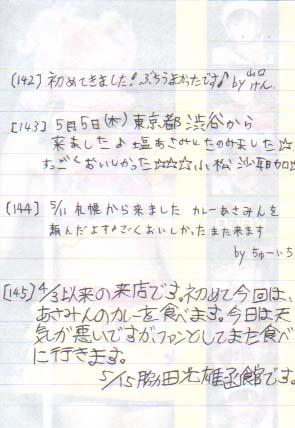 [142] 初めてきました!ぶちうまかったです♪ by 山口けん
[143] 5月5日(木)東京都渋谷から
来ました♪塩あさみしたのみました☆
すっごくおいしかった☆☆☆小松沙耶加☆
[144] 5/11 札幌から来ました カレーあさみんを
頼んだよす♪ごくおいしかったまた来ます
by ちゅーいち
[145] 4/3以来の来店です。初めて今回は、
あさみんのカレーを食べます。今日は天
気が悪いですが、ファンとしてまた食べ
に行きます。
5/15 勝田光雄函館です。